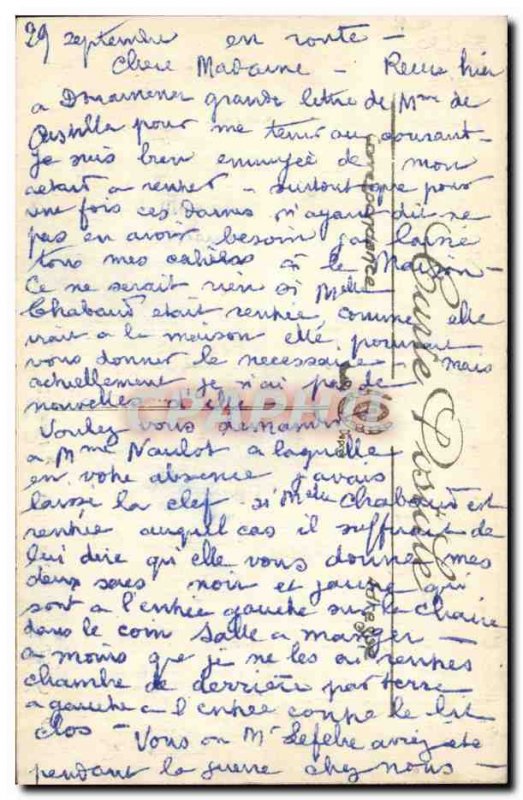 29 septembre en route -
Chere Madame - Recu hier
a Douarnenez grande lettre de Mme de
pour me tenir au courant -
je suis bien ennuyée de mon
retard a rentrer - surtout que pour
une fois ces dames m'ayant dit ne
pas en avoir besoin j'ai laissé
tous mes cahiers à la Maison -
Ce ne serait rien si Melle
Chabaud etait rentrée, comme elle
irait a la maison elle pourrait
vous donner le necessaire - mais
actuellement je n'ai pas de
nouvelles
Voulez vous demander
a Mme Naulot a laquelle
en votre absence j'avais
laissé la clef si Melle Chabaud est
rentrée auquel cas il suffirait de
lui dire qu'elle vous donne mes
deux sacs noir et jaune qui
sont a l'entrée gauche sur la chaise
dans le coin salle a manger -
a moins que je ne les ai rentrés
chambre de derrière par terre
a gauche a l'entrée contre le lit
clos - Vous ou Mr Lefebre aviez eté
pendant la guerre chez nous -
Carte Postale
Correspondance
Adresse
CPAPHIL